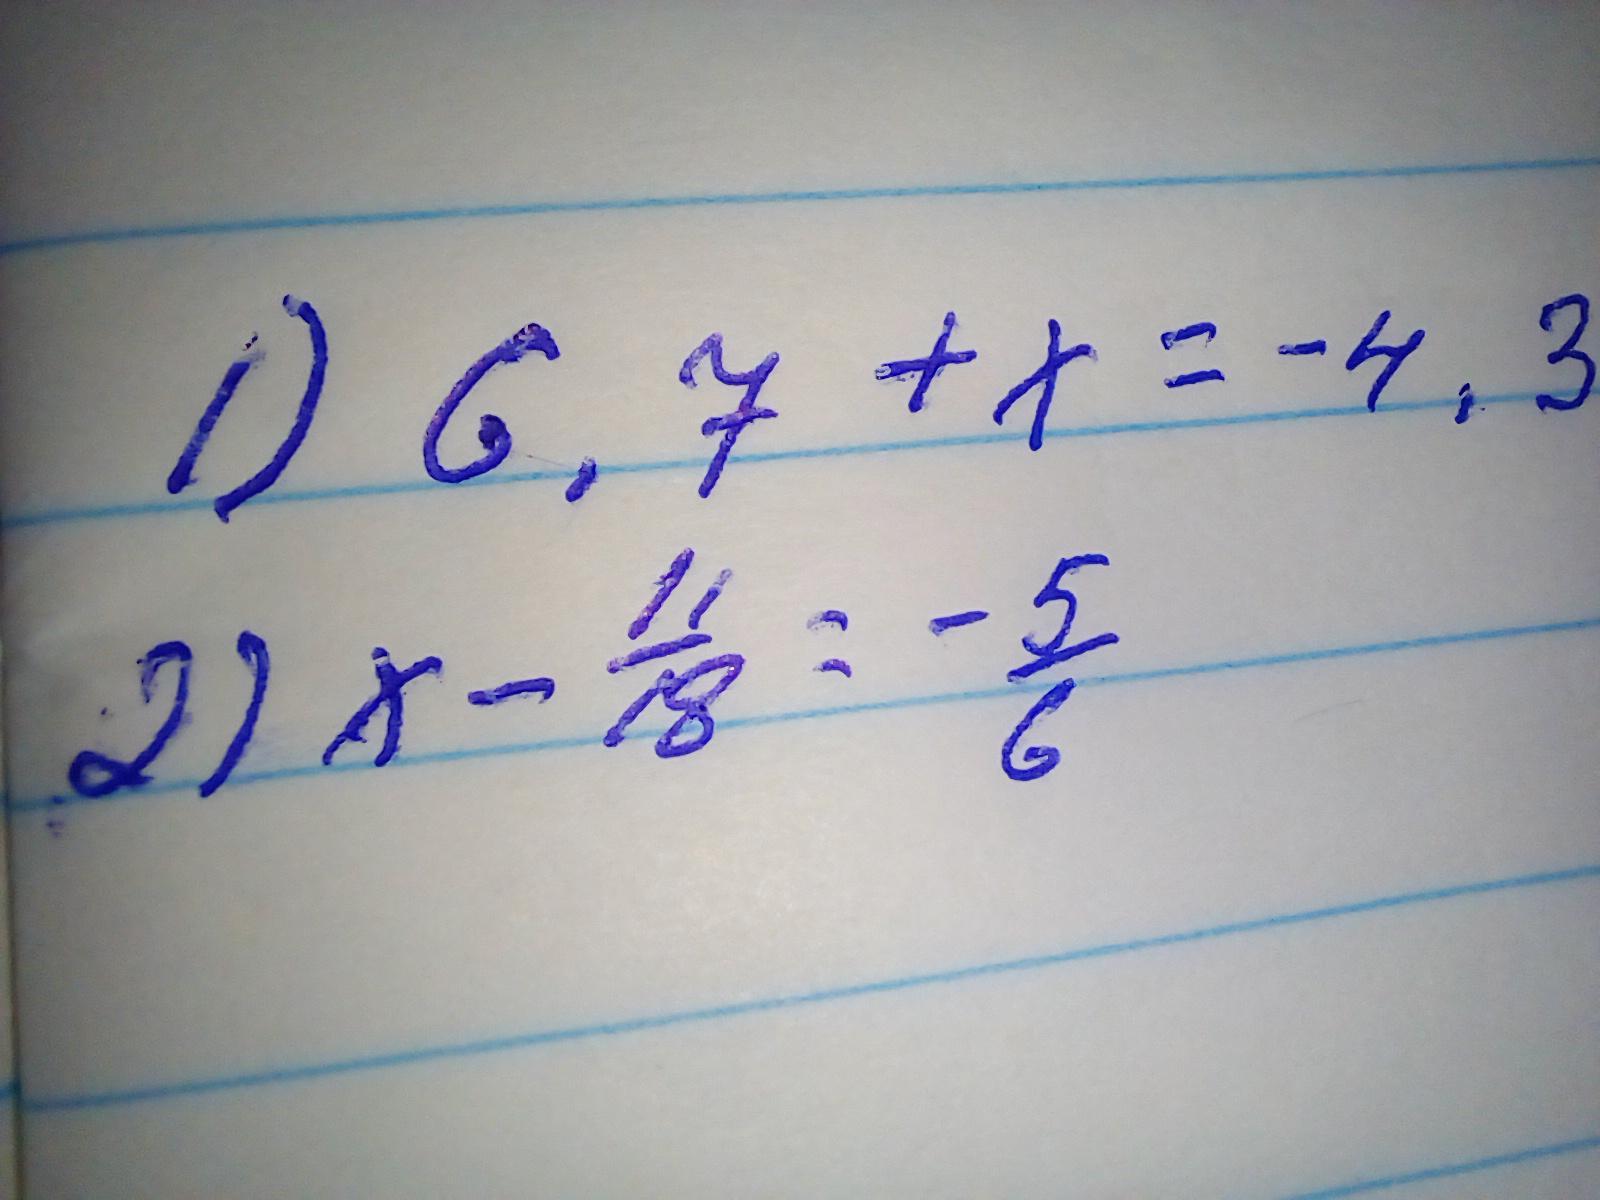 1) 6,7 + x = -4,3
2) x - 11/18 = - 5/6